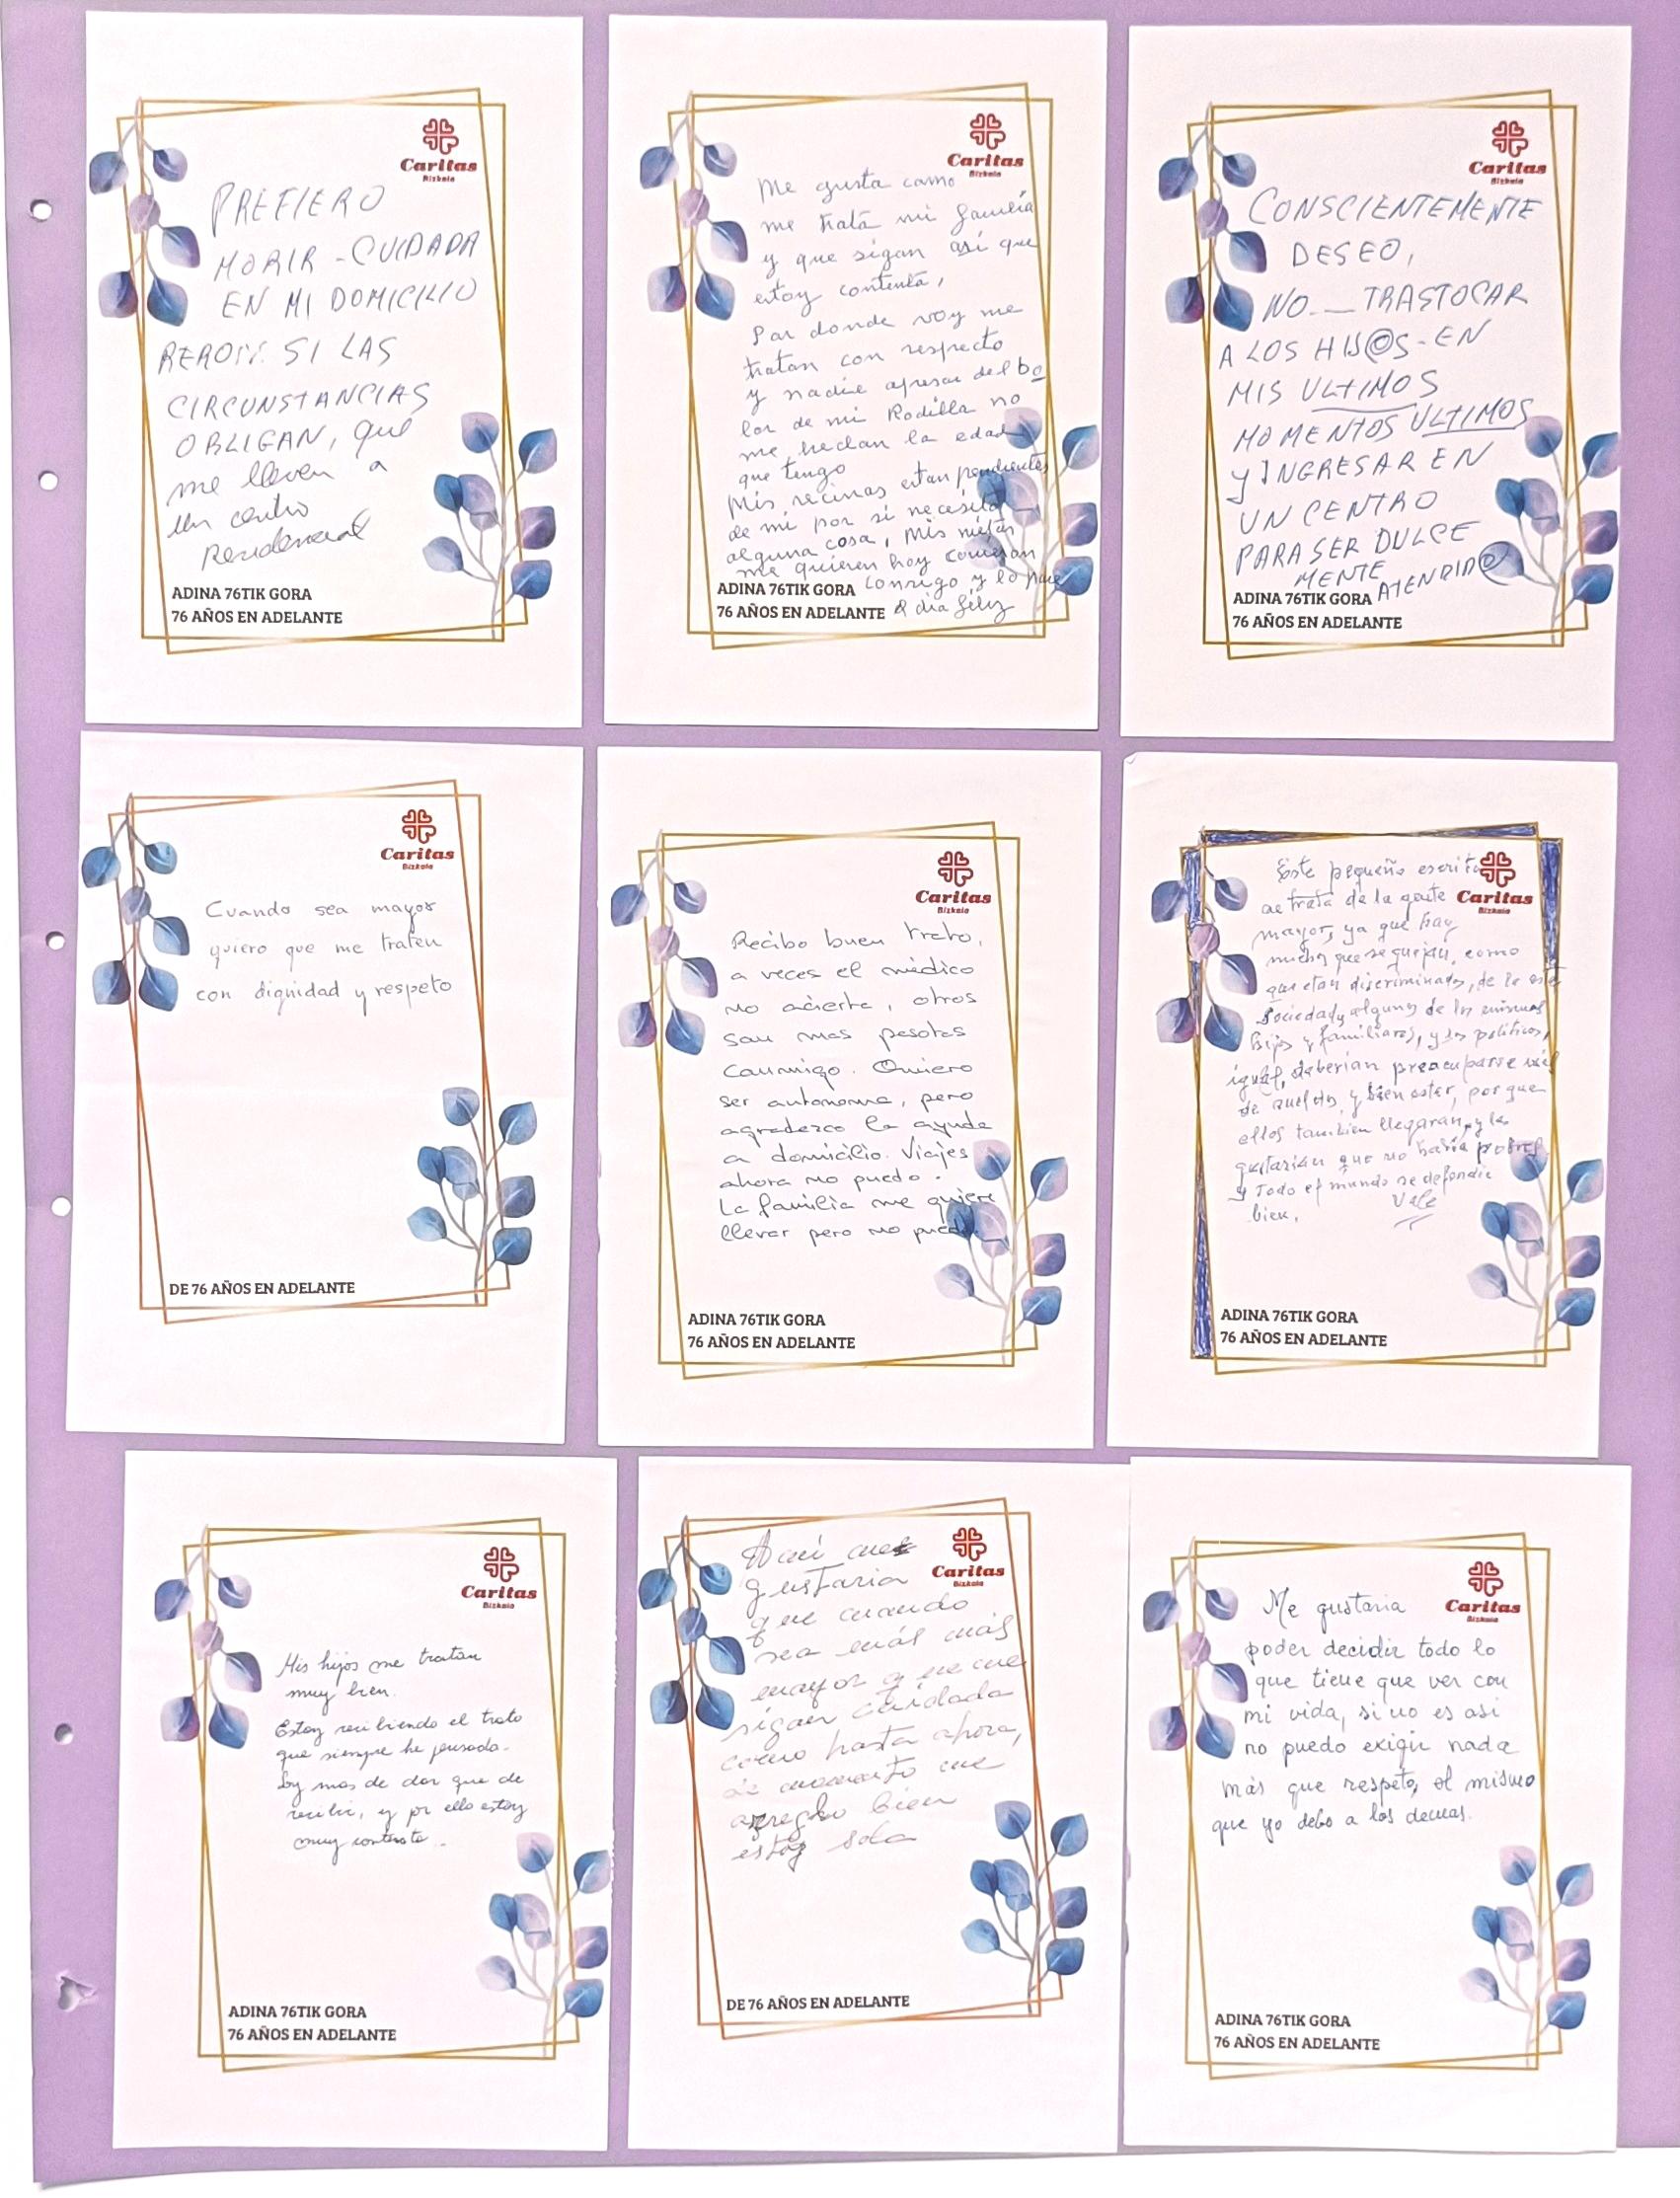 Caritas
Bizkaia
PREFIERO
MORIR - CUIDADA
EN MI DOMICILIO
SI LAS
CIRCUNSTANCIAS
OBLIGAN, que
me lleven a
un centro
Residencial
ADINA 76TIK GORA
76 AÑOS EN ADELANTE
Caritas
Bizkaia
Me gusta como
me trata mi familia
y que sigan así que
estoy contenta,
Por donde voy me
tratan con respecto
y nadie apesar del bo
lor de mi Rodilla no
me hechan la edad
que tengo
Mis vecinas estan pendientes
de mi por si necesito
alguna cosa, Mis nietas
me quieren hoy comieron
conmigo y lo pase
el dia féliz
ADINA 76TIK GORA
76 AÑOS EN ADELANTE
Caritas
Bizkaia
CONSCIENTEMENTE
DESEO,
NO__TRASTOCAR
A LOS HIJ@S-EN
MIS ULTIMOS
MOMENTOS ULTIMOS
Y INGRESAR EN
UN CENTRO
PARA SER DULCE
MENTE
ATENDID@
ADINA 76TIK GORA
76 AÑOS EN ADELANTE
Caritas
Bizkaia
Cuando sea mayor
quiero que me traten
con dignidad y respeto
DE 76 AÑOS EN ADELANTE
Caritas
Bizkaia
Recibo buen trato,
a veces el médico
no acierta, otros
son mas pesotas
conmigo. Quiero
ser autonoma, pero
agradezco la ayuda
a domicilio. Viajes
ahora no puedo.
La familia me quiere
llevar pero no puedo
ADINA 76TIK GORA
76 AÑOS EN ADELANTE
Caritas
Bizkaia
Este pequeño escrito
se trata de la gente
mayor, ya que hay
muchos que se quejan, como
que etan discriminados, de la
Sociedad y algunos de los mismos
hijos y familiares, y los politicos,
igual, deberian preocuparse más
de sueldos, y bien ester, por que
ellos tambien llegaran, y les
gustarian que no haria pobres
y Todo el mundo se defendie
bien. Vale
ADINA 76TIK GORA
76 AÑOS EN ADELANTE
Caritas
Bizkaia
Mis hijos me tratan
muy bien.
Estoy recibiendo el trato
que siempre he pensado.
Soy mas de dar que de
recibir, y por ello estoy
muy contenta.
ADINA 76TIK GORA
76 AÑOS EN ADELANTE
Caritas
Bizkaia
A mi me
gustaria
que cuando
sea más más
mayor que me
sigan cuidada
como hasta ahora,
de momento me
arreglo bien
estoy sola
DE 76 AÑOS EN ADELANTE
Caritas
Bizkaia
Me gustaria
poder decidir todo lo
que tiene que ver con
mi vida, si no es asi
no puedo exigir nada
más que respeto, el mismo
que yo debo a los demas.
ADINA 76TIK GORA
76 AÑOS EN ADELANTE